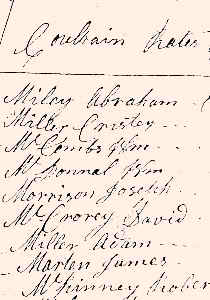 Coulrain Rates
Miley Abraham
Miller Cristey
McCombs Wm
McConnal Wm
Morrison Joseph
McCrorey David
Miller Adam
Marlen James
McKinney Rober